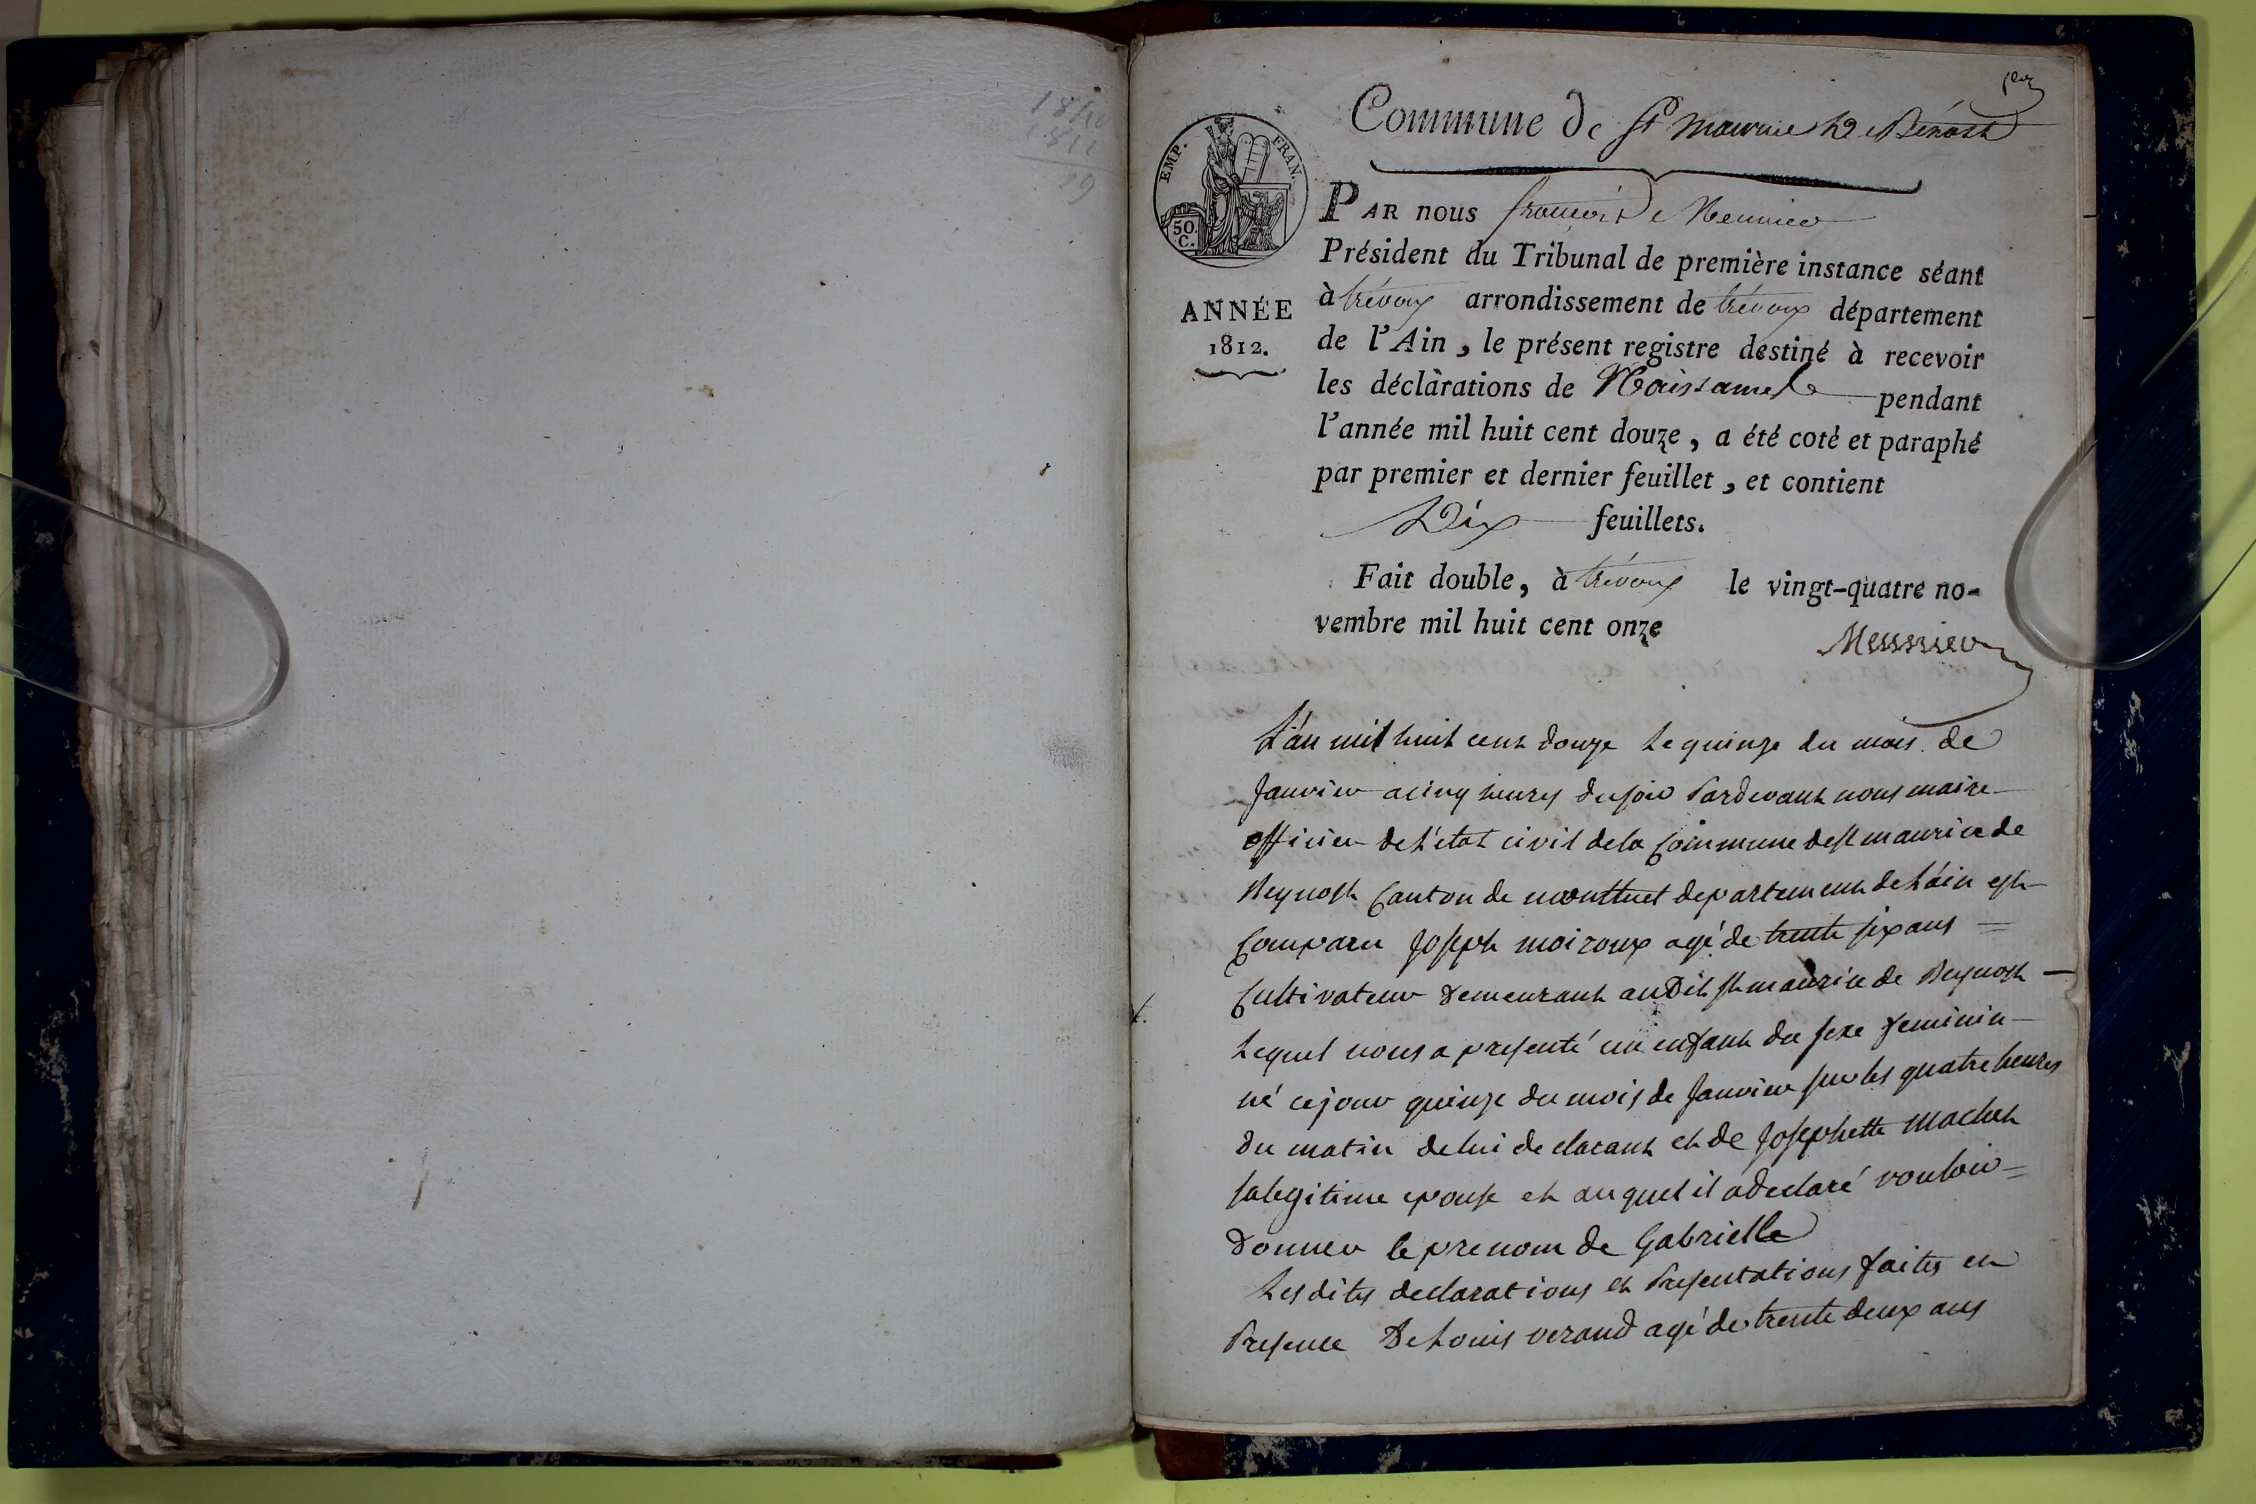 1810
1811
19
per
Commune de St maurice de Bénost
EMP. FRAN.
50.
C.
PAR nous françois Meunier
Président du Tribunal de première instance séant
ANNÉE
1812.
à trévoux arrondissement de trévoux département
de l'Ain, le présent registre destiné à recevoir
les déclarations de Naissance pendant
l'année mil huit cent douze, a été coté et paraphé
par premier et dernier feuillet, et contient
Dix feuillets.
Fait double, à trévoux le vingt-quatre no-
vembre mil huit cent onze
Meunier
L'an mil huit cent douze le quinze du mois de
Janvier a cinq heures du soir Pardevant nous maire
officier de l'état civil de la Commune de st maurice de
Beynost Canton de montluel departement de l'ain est
Comparu Joseph moiroux agé de trente six ans =
Cultivateur demeurant audit st maurice de Beynost —
Lequel nous a presenté un enfant du sexe feminin —
né ce jour quinze du mois de Janvier sur les quatre heures
du matin de lui declarant et de Josephette machet
sa legitime epouse et auquel il a declaré vouloir =
donner le prenom de Gabrielle
Les dites declarations et Presentations faites en
Presence De Louis verand agé de trente deux ans